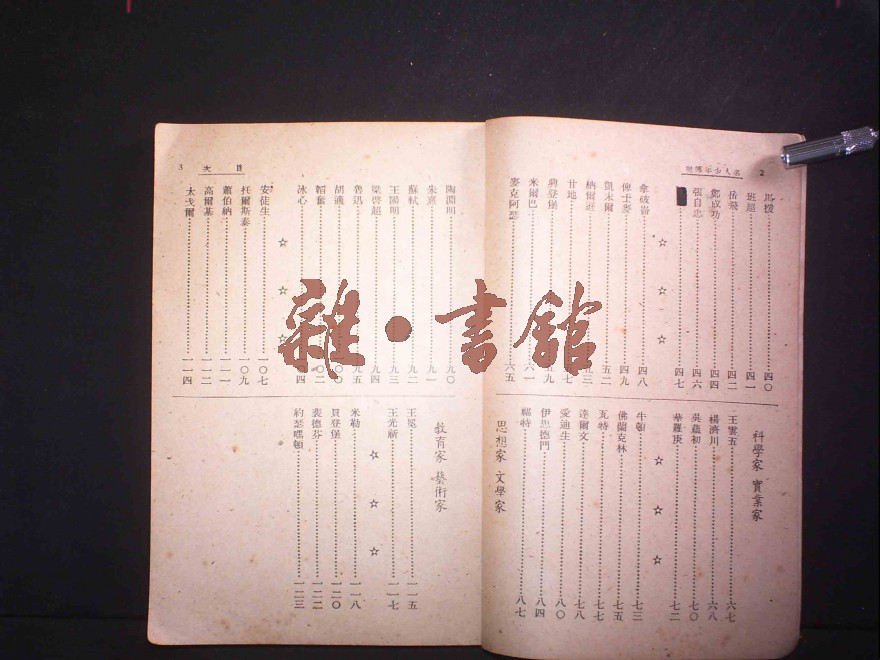 2 名人少年時代
馬援 四〇
班超 四一
岳飛 四二
鄭成功 四四
張自忠 四六
四七
☆ ☆ ☆
拿破崙 四八
俾士麥 四九
凱末爾 五二
納爾遜 五三
甘地
興登堡
米爾巴 六一
麥克阿瑟 六五
科學家 實業家
王雲五 六七
楊濟川 六八
吳蘊初 七〇
華羅庚 七二
☆ ☆ ☆
牛頓 七三
佛蘭克林 七五
瓦特 七七
達爾文 七八
愛迪生 八〇
伊思德門 八四
福特 八七
思想家 文學家
目次 3
陶淵明 九〇
朱熹 九一
蘇軾 九二
王陽明 九三
梁啓超 九四
魯迅 九五
胡適
韜奮
冰心
☆ ☆ ☆
安徒生 一〇七
托爾斯泰 一〇九
蕭伯納 一一一
高爾基 一一二
太戈爾 一一四
教育家 藝術家
王冕 一一五
王光祈 一一七
☆ ☆ ☆
米勒 一一八
貝登堡 一二〇
裴德芬 一二二
約瑟嘿頓 一二三
雜·書館